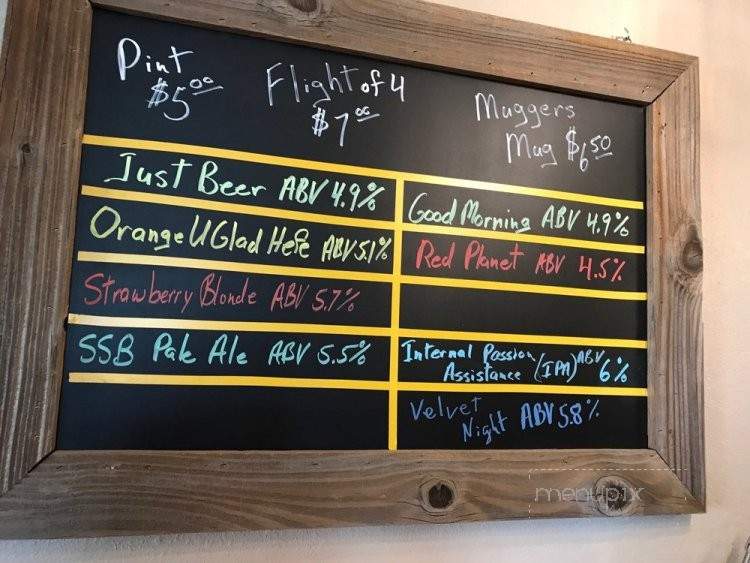 Pint
$5.00
Flight of 4
$7.00
Muggers
Mug $6.50
Just Beer ABV 4.9%
Orange U Glad Hefe ABV 5.1%
Strawberry Blonde ABV 5.7%
SSB Pale Ale ABV 5.5%
Good Morning ABV 4.9%
Red Planet ABV 4.5%
Internal Passion
Assistance (IPA) ABV 6%
Velvet
Night ABV 5.8%
menupix